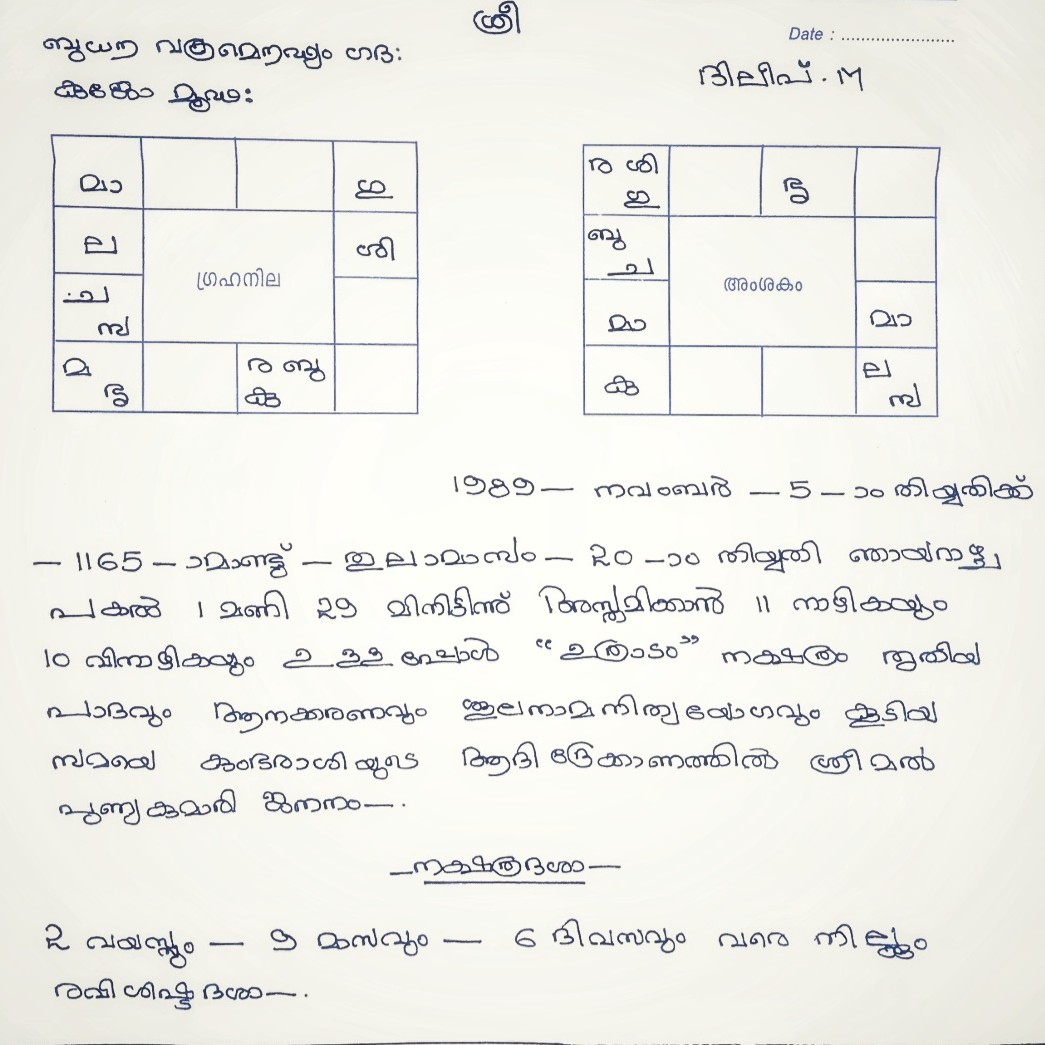 ശ്രീ
Date : ........................
ദിലീപ്. M
ബുധന വക്രമൌഢ്യം ഗദഃ
കുജോ മൂഢഃ
മാ
ഗു
ല
ശി
ഗ്രഹനില
ച
സ
മ
ഭൃ
ര ബു
കു
ര ശി
ഗു
ഭൃ
ബു
ച
അംശകം
മ
മാ
കു
ല
സ
1989 — നവംബർ — 5 — ാം തിയ്യതിക്ക്
— 1165 — ാമാണ്ട് — തുലാമാസം — 20 — ാം തിയ്യതി ഞായറാഴ്ച
പകൽ 1 മണി 29 മിനിട്ടിന് അസ്തമിക്കാൻ 11 നാഴികയും
10 വിനാഴികയും ഉള്ളപ്പോൾ “ഉത്രാടം” നക്ഷത്രം തൃതീയ
പാദവും ആനക്കരണവും ശൂലനാമനിത്യയോഗവും കൂടിയ
സമയെ കുംഭരാശിയുടെ ആദി ദ്രേക്കാണത്തിൽ ശ്രീമൽ
പുണ്യകുമാരി ജനനം—.
—നക്ഷത്രദശാ—
2 വയസ്സും — 9 മാസവും — 6 ദിവസവും വരെ നില്ക്കും
രവിശിഷ്ടദശാ—.